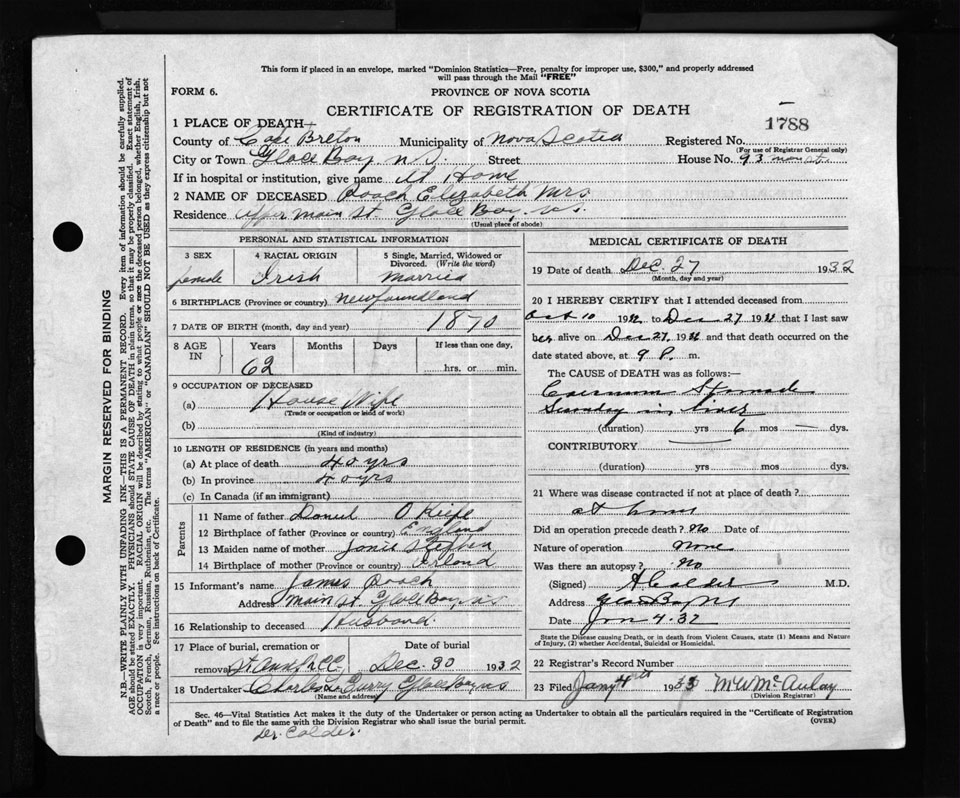 This form if placed in an envelope, marked "Dominion Statistics—Free, penalty for improper use, $300," and properly addressed
will pass through the Mail "FREE"
FORM 6.
PROVINCE OF NOVA SCOTIA
CERTIFICATE OF REGISTRATION OF DEATH
1788
1 PLACE OF DEATH—
County of Cape Breton Municipality of Nova Scotia Registered No.
(For use of Registrar General only)
City or Town Glace Bay N.S. Street House No. 93 main st
If in hospital or institution, give name At Home
2 NAME OF DECEASED Roach Elizabeth Mrs
Residence upper main St. Glace Bay N.S.
(Usual place of abode)
PERSONAL AND STATISTICAL INFORMATION
3 SEX 4 RACIAL ORIGIN 5 Single, Married, Widowed or
Divorced. (Write the word)
female Irish Married
6 BIRTHPLACE (Province or country) Newfoundland
7 DATE OF BIRTH (month, day and year) 1870
8 AGE IN Years Months Days If less than one day,
62 hrs. or min.
9 OCCUPATION OF DECEASED
(a) House Wife
(Trade or occupation or kind of work)
(b)
(Kind of industry)
10 LENGTH OF RESIDENCE (in years and months)
(a) At place of death 40 yrs
(b) In province 40 yrs
(c) In Canada (if an immigrant)
Parents
11 Name of father Daniel O Kiefe
12 Birthplace of father (Province or country) England
13 Maiden name of mother Stephen
14 Birthplace of mother (Province or country) Ireland
15 Informant's name James Roach
Address Main St. Glace Bay N.S.
16 Relationship to deceased Husband.
17 Place of burial, cremation or Date of burial
removal St Anns Dec. 30 1932
18 Undertaker Charles Curry Glace Bay N.S.
(Name and address)
MEDICAL CERTIFICATE OF DEATH
19 Date of death Dec. 27 1932
(Month, day and year)
20 I HEREBY CERTIFY that I attended deceased from
Oct 10 1932 to Dec 27 1932 that I last saw
her alive on Dec 27, 1932 and that death occurred on the
date stated above, at 9 P. m.
The CAUSE of DEATH was as follows:—
Stomach
Secondary in liver
(duration) yrs 6 mos — dys.
CONTRIBUTORY
(duration) yrs. mos. dys.
21 Where was disease contracted if not at place of death?
at home
Did an operation precede death? No Date of
Nature of operation None
Was there an autopsy? No
(Signed) A Calder M.D.
Address Glace Bay NS
Date Jan 4. 32
State the Disease causing Death, or in death from Violent Causes, state (1) Means and Nature
of Injury, (2) whether Accidental, Suicidal or Homicidal.
22 Registrar's Record Number
23 Filed Jany 4th 1933 McAulay
(Division Registrar)
Sec. 46—Vital Statistics Act makes it the duty of the Undertaker or person acting as Undertaker to obtain all the particulars required in the "Certificate of Registration
of Death" and to file the same with the Division Registrar who shall issue the burial permit.
(OVER)
Dr. Calder.
MARGIN RESERVED FOR BINDING
N.B.—WRITE PLAINLY WITH UNFADING INK—THIS IS A PERMANENT RECORD. Every item of information should be carefully supplied.
AGE should be stated EXACTLY. PHYSICIANS should STATE CAUSE OF DEATH in plain terms, so that it may be properly classified. Exact statement of
OCCUPATION is very important. RACIAL ORIGIN will be described by stating to what people or race the deceased person belonged, whether English, Irish,
Scotch, French, German, Russian, Ruthenian, etc. The terms "AMERICAN" or "CANADIAN" SHOULD NOT BE USED as they express citizenship but not
a race or people. See instructions on back of Certificate.